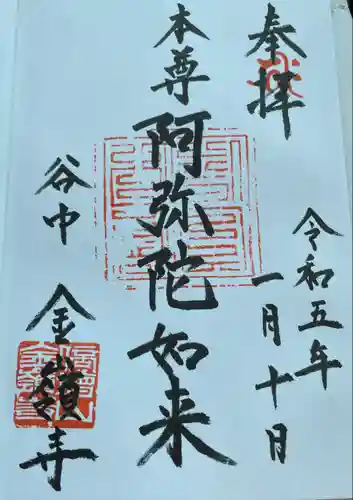 奉拝
令和五年
一月十日
本尊
阿弥陀如来
谷中
金嶺寺